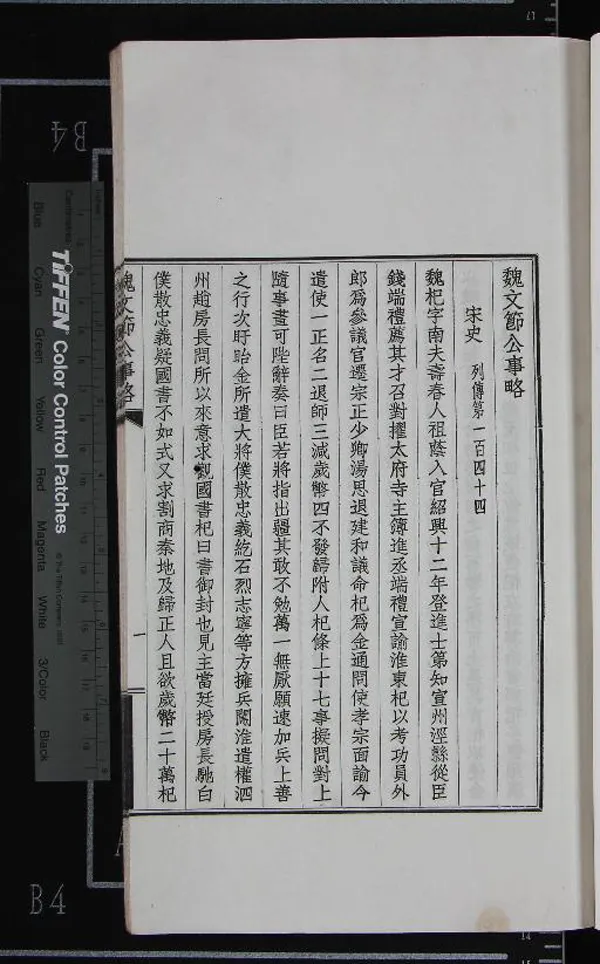 魏文節公事略
宋史 列傳第一百四十四
魏杞字南夫壽春人祖蔭入官紹興十二年登進士第知宣州涇縣從臣
錢端禮薦其才召對擢太府寺主簿進丞端禮宣諭淮東杞以考功員外
郎爲參議官遷宗正少卿湯思退建和議命杞爲金通問使孝宗面諭今
遣使一正名二退師三減歲幣四不發歸附人杞條上十七事擬問對上
隨事畫可陛辭奏曰臣若將指出疆其敢不勉萬一無厭願速加兵上善
之行次盱眙金所遣大將僕散忠義紇石烈志寧等方擁兵闖淮遣權泗
州趙房長問所以來意求觀國書杞曰書御封也見主當廷授房長馳白
僕散忠義疑國書不如式又求割商秦地及歸正人且欲歲幣二十萬杞
魏文節公事略
一
B4
B4
TIFFEN Color Control Patches
© The Tiffen Company, 2000
Centimetres
Blue
Cyan
Green
Yellow
Red
Magenta
White
3/Color
Black